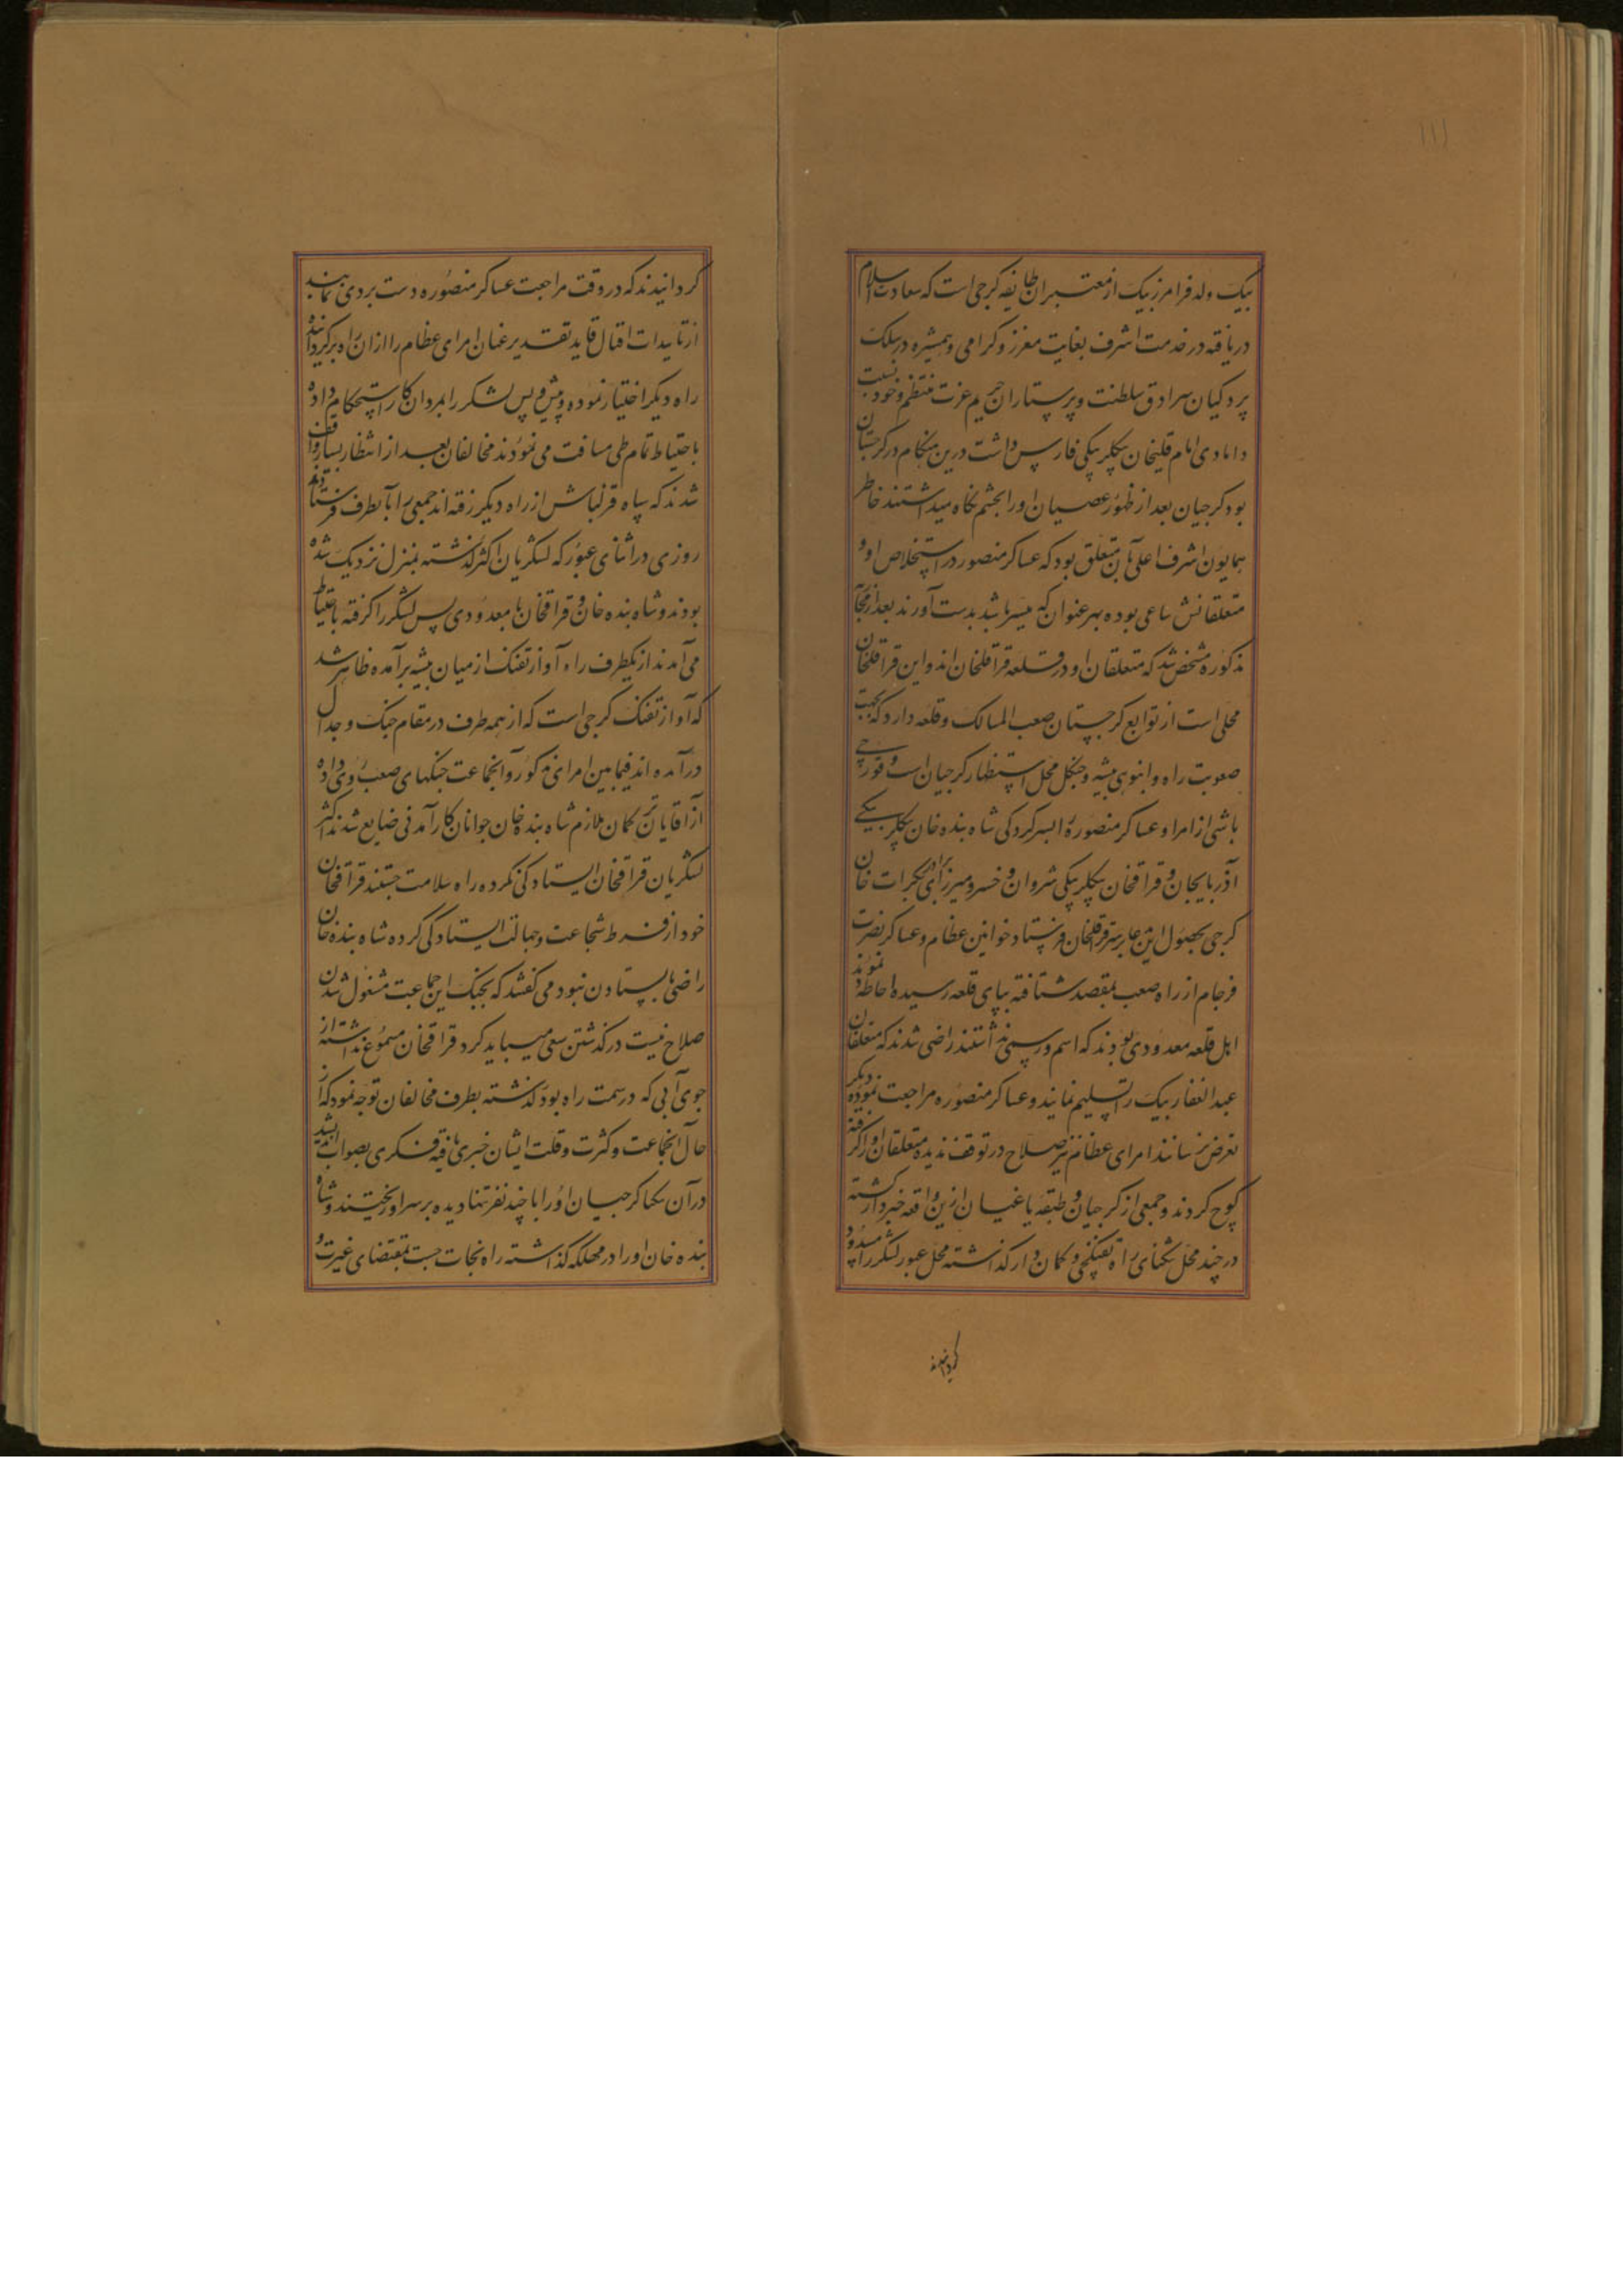 ۱۱۱
بیک ولد فرامرز بیک از معتبران طایفه کرجی است که سعادت اسلام
دریافته در خدمت اشرف بغایت معزز و کرامی و همشیره در سلک
پردکیان سرادق سلطنت و پرستاران حریم عزت منتظم و خود نسبت
دامادی امام قلیخان بیکلربیکی فارس داشت درین هنکام در کرجستان
بود کرجیان بعد از ظهور عصیان او را بچشم نکاه میداشتند خاطر
همایون اشرف اعلی بآن متعلق بود که عساکر منصور در استخلاص او و
متعلقانش ساعی بوده بهر عنوان که میسر باشد بدست آورند بعد از
مذکوره مشخص شد که متعلقان او در قلعه قراقلخان اند و این قراقلخان
محلی است از توابع کرجستان صعب المسالک و قلعه دارد که بجهت
صعوبت راه و انبوهی بیشه و جنکل محل استظهار کرجیان است و قورچی
باشی از امرا و عساکر منصوره بسرکردکی شاه بنده خان بیکلربیکی
آذربایجان و قراقخان بیکلربیکی شروان و خسرو میرزا برادر بکرات خان
کرجی بحصول این مدعا بر سر قراقلخان فرستاد خوانین عظام و عساکر نصرت
فرجام از راه صعب بمقصد شتافته بپای قلعه رسیده احاطه نمودند
اهل قلعه معدودی بودند که اسم و رسمی نداشتند راضی شدند که متعلقان
عبدالغفار بیک را تسلیم نمایند و عساکر منصوره مراجعت نموده دیکر
تعرض نرسانند امرای عظام نیز صلاح در توقف ندیده متعلقان او را کرفته
کوچ کردند و جمعی از کرجیان و طبقه یاغیان ازین واقعه خبردار کشته
در چند محل تنکنای راه تفنکچی و کمان دار کذاشته محل عبور لشکر را مسدود
کردانیدند
کردانیدند که در وقت مراجعت عساکر منصوره دست بردی نمایند
از تاییدات اقبال قاید تقدیر عنان امرای عظام را از ان راه برکردانیده
راه دیکر اختیار نموده و پیش و پس لشکر را بمردان کار استحکام داده
باحتیاط تمام طی مسافت می نمودند مخالفان بعد از انتظار بسیار واقف
شدند که سپاه قزلباش از راه دیکر رفته اند جمعی را بآنطرف فرستادند
روزی در اثنای عبور که لشکریان اکثر کذشته بمنزل نزدیک شده
بودند و شاه بنده خان و قراقخان با معدودی پس لشکر را کرفته باحتیاط
می آمدند از یکطرف راه آواز تفنک از میان بیشه برآمده ظاهر شد
که آواز تفنک کرجی است که از همه طرف در مقام جنک و جدال
درآمده اند فیمابین امرای مذکور و آنجماعت جنکهای صعب روی داده
از آقایان ترکمان ملازم شاه بنده خان جوانان کارآمدنی ضایع شدند اکثر
لشکریان قراقخان ایستادکی نکرده راه سلامت جستند قراقخان
خود از فرط شجاعت و جهالت ایستادکی کرده شاه بنده خان
راضی بایستادن نبود می کفتند که بجنک این جماعت مشغول شدن
صلاح نیست در کذشتن سعی میباید کرد قراقخان مسموع نداشته از
جوی آبی که در سمت راه بود کذشته بطرف مخالفان توجه نمود که از
حال آنجماعت و کثرت و قلت ایشان خبری یافته فکری بصواب اندیشد
در آن تنکنا کرجیان او را با چند نفر تنها دیده بر سر او ریختند و شاه
بنده خان او را در مهلکه کذاشته راه نجات جست بمقتضای غیرت و